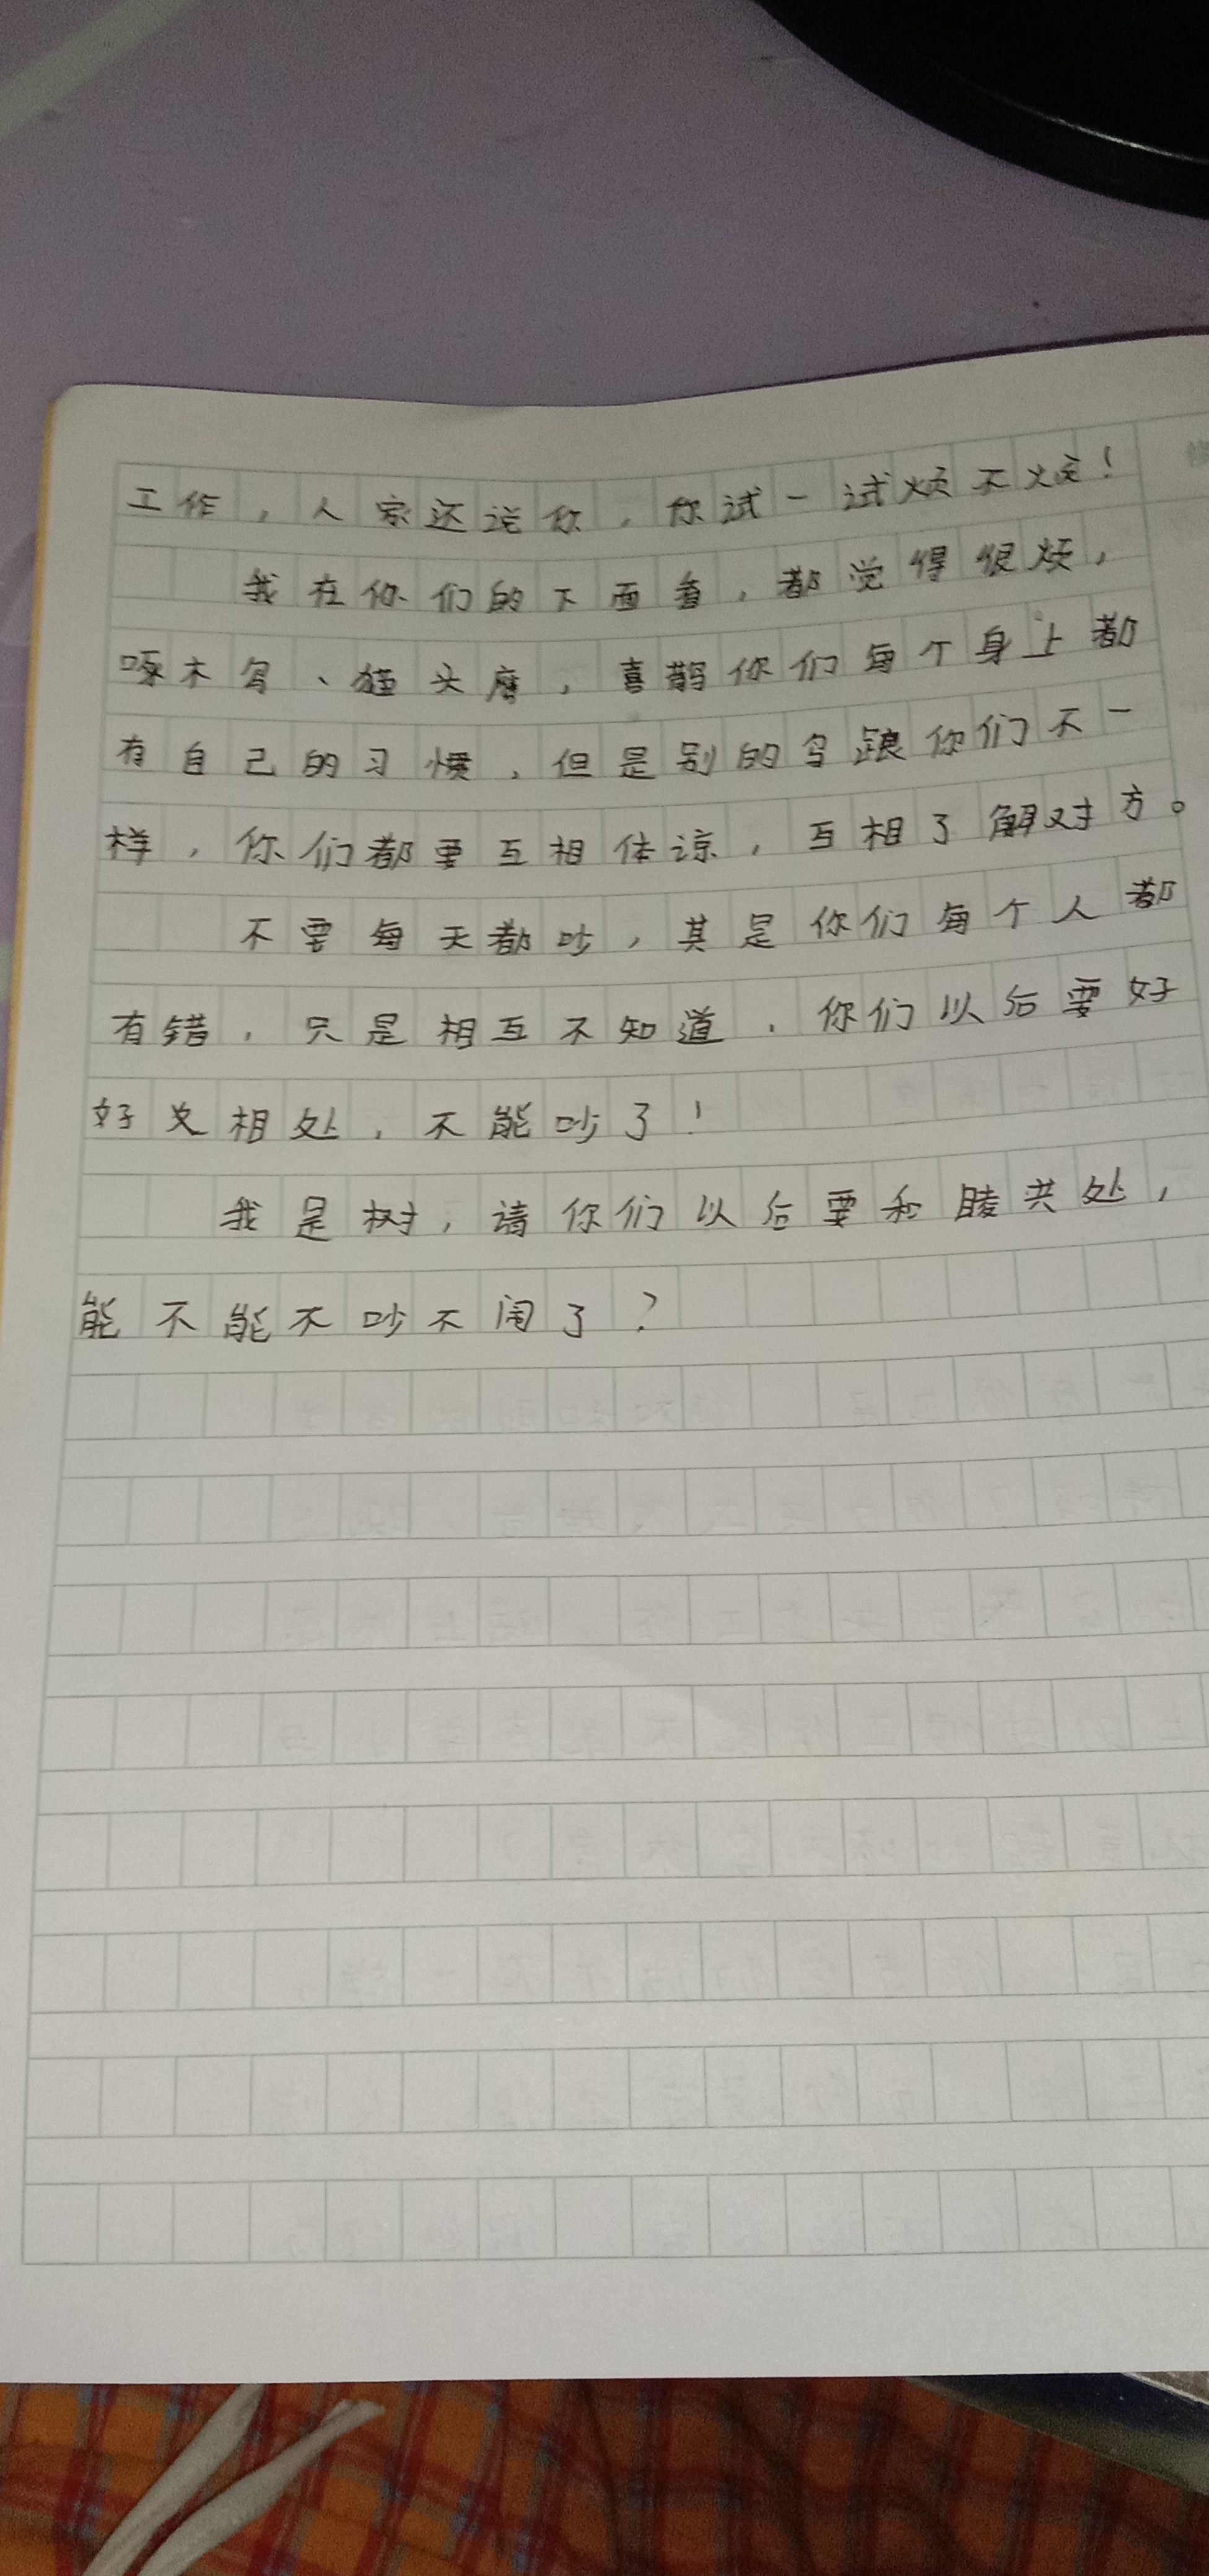 工作，人家还说你，你试一试烦不烦！
我在你们的下面看，都觉得很烦，
啄木鸟、猫头鹰，喜鹊你们每个身上都
有自己的习惯，但是别的鸟跟你们不一
样，你们都要互相体谅，互相了解对方。
不要每天都吵，其是你们每个人都
有错，只是相互不知道，你们以后要好
好相处，不能吵了！
我是树，请你们以后要和睦共处，
能不能不吵不闹了？